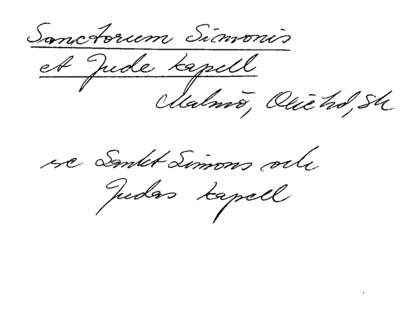 Sanctorum Simonis
et Jude kapell
Malmö, Oxie hd, Sk
se Sankt Simons och
Judas kapell